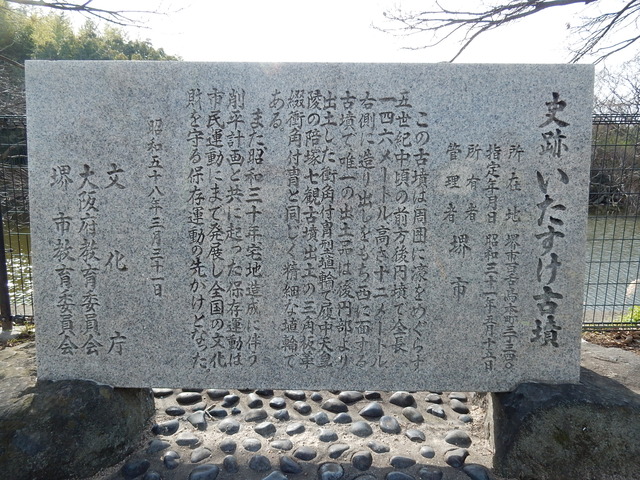 史跡 いたすけ古墳
所在地 堺市百舌鳥本町三丁三二〇
指定年月日 昭和三十一年五月十五日
所有者
管理者 堺市
この古墳は周囲に濠をめぐらす
五世紀中頃の前方後円墳で全長
一四六メートル高さ十二メートル
右側に造り出しをもち西に面する
古墳で唯一の出土品は後円部より
出土した衝角付冑型埴輪で履中天皇
陵の陪塚七観古墳出土の三角板革
綴衝角付冑と同じく精細な埴輪で
ある。
また昭和三十年宅地造成に伴う
削平計画と共に起った保存運動は
市民運動にまで発展し全国の文化
財を守る保存運動の先がけとなった
昭和五十八年三月三十一日
文化庁
大阪府教育委員会
堺市教育委員会